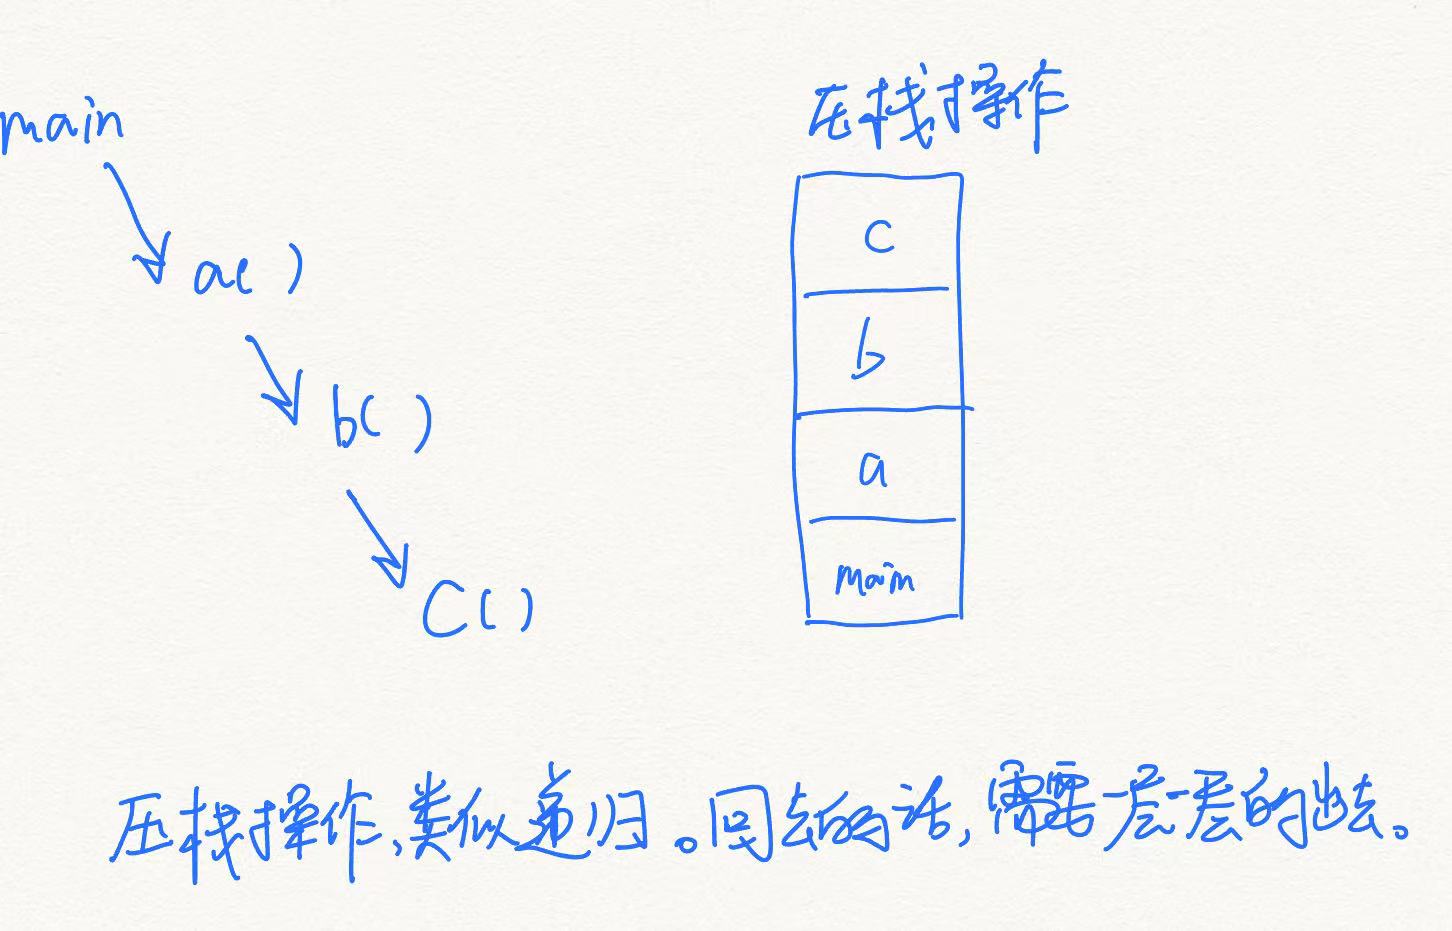 main
a()
b()
C()
压栈操作
c
b
a
main
压栈操作,类似递归。回去的话,需要一层一层的出去。